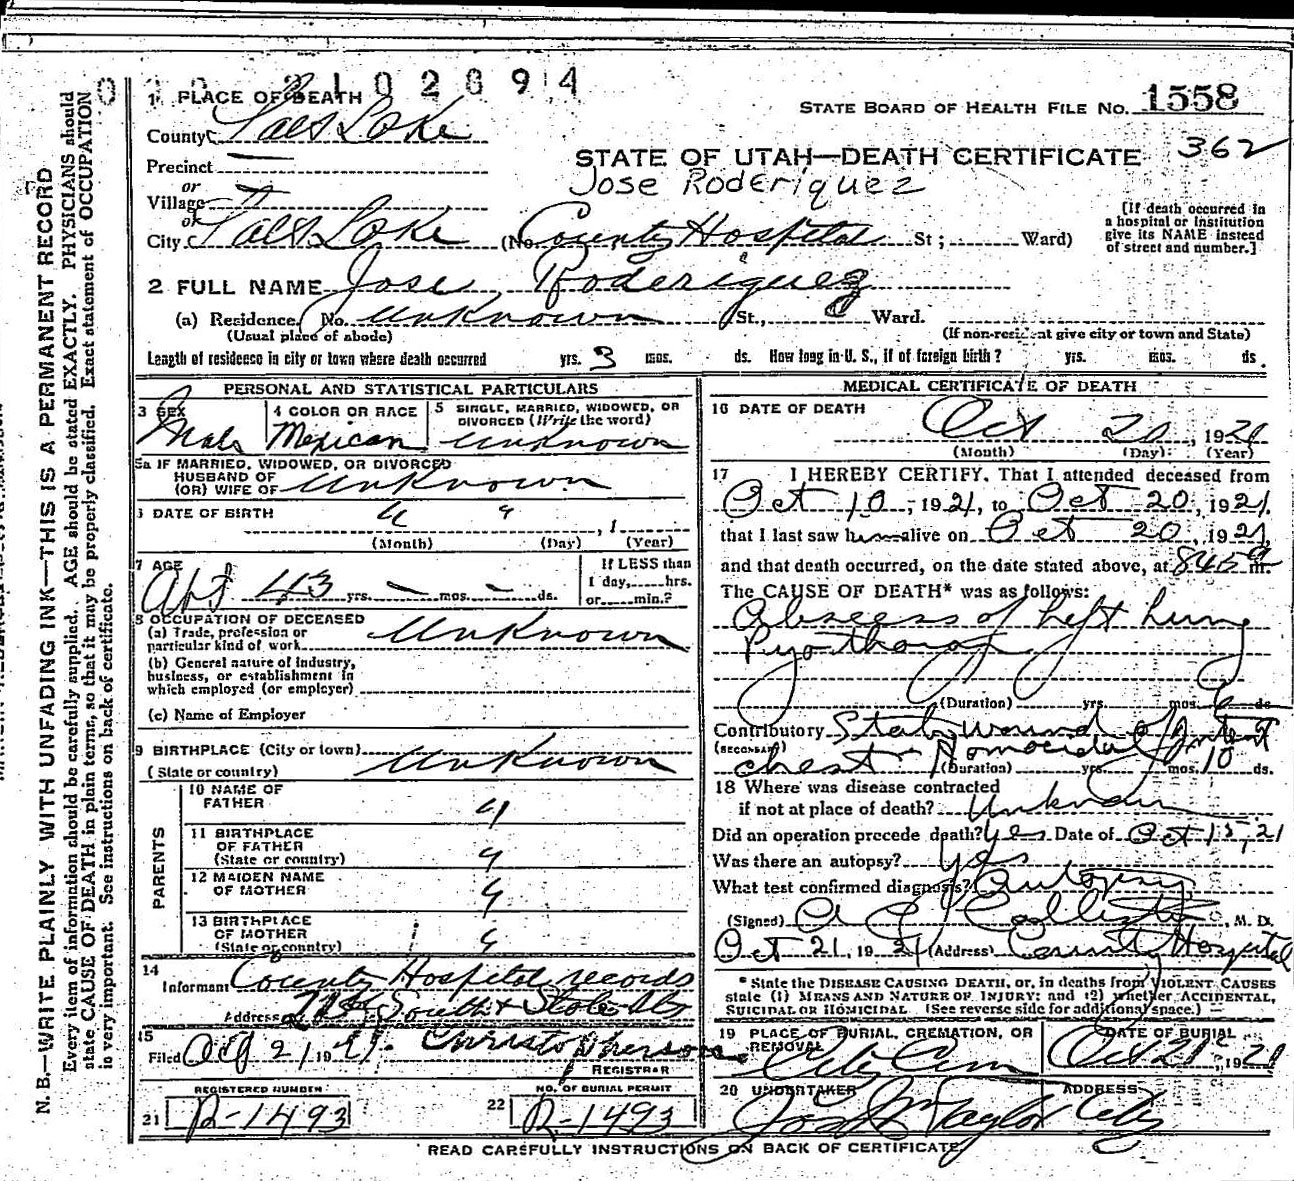 2102894
1 PLACE OF DEATH
STATE BOARD OF HEALTH FILE NO. 1558
County Salt Lake
362
STATE OF UTAH—DEATH CERTIFICATE
Precinct
or
Jose Roderiquez
Village
or
City Salt Lake (No. County Hospital St; Ward)
[If death occurred in
a hospital or institution
give its NAME instead
of street and number.]
2 FULL NAME Jose Roderiquez
(a) Residence. No. Unknown St., Ward.
(Usual place of abode) (If non-resident give city or town and State)
Length of residence in city or town where death occurred yrs. 3 mos. ds. How long in U. S., if of foreign birth? yrs. mos. ds.
PERSONAL AND STATISTICAL PARTICULARS
3 SEX Male
4 COLOR OR RACE Mexican
5 SINGLE, MARRIED, WIDOWED, OR
DIVORCED (Write the word)
Unknown
5a IF MARRIED, WIDOWED, OR DIVORCED
HUSBAND OF
(OR) WIFE OF Unknown
6 DATE OF BIRTH , 1
(Month) (Day) (Year)
7 AGE
Abt 43 yrs. — mos. — ds.
If LESS than
1 day, hrs.
or min.?
8 OCCUPATION OF DECEASED
(a) Trade, profession or
particular kind of work Unknown
(b) General nature of industry,
business, or establishment in
which employed (or employer)
(c) Name of Employer
9 BIRTHPLACE (City or town)
(State or country) Unknown
PARENTS
10 NAME OF
FATHER
11 BIRTHPLACE
OF FATHER
(State or country)
12 MAIDEN NAME
OF MOTHER
13 BIRTHPLACE
OF MOTHER
(State or country)
14
Informant County Hospital records
Address South & State Sts
15
Filed Oct 21 1921. Christopherson
REGISTRAR
REGISTERED NUMBER
21 R-1493
NO. OF BURIAL PERMIT
22 R-1493
MEDICAL CERTIFICATE OF DEATH
16 DATE OF DEATH
Oct 20, 1921
(Month) (Day) (Year)
17 I HEREBY CERTIFY, That I attended deceased from
Oct 10, 1921, to Oct 20, 1921.
that I last saw him alive on Oct 20, 1921,
and that death occurred, on the date stated above, at 845 a m.
The CAUSE OF DEATH* was as follows:
Abscess of Left Lung
Pyothorax
(Duration) yrs. mos. ds.
Contributory Stab wound of
(SECONDARY)
chest - Homocidal Intent
(Duration) yrs. mos. 10 ds.
18 Where was disease contracted
if not at place of death? Unknown
Did an operation precede death? Yes Date of Oct 15, 21
Was there an autopsy? yes
What test confirmed diagnosis? Autopsy
(Signed) Callister, M. D.
Oct 21, 1921 (Address) County Hospital
* State the DISEASE CAUSING DEATH, or, in deaths from VIOLENT CAUSES
state (1) MEANS AND NATURE OF INJURY; and (2) whether ACCIDENTAL,
SUICIDAL OR HOMICIDAL. (See reverse side for additional space.)
19 PLACE OF BURIAL, CREMATION, OR
REMOVAL
City Cem
DATE OF BURIAL
Oct 21, 1921
20 UNDERTAKER
Jos Wm Taylor
ADDRESS
City
READ CAREFULLY INSTRUCTIONS ON BACK OF CERTIFICATE.
N. B.—WRITE PLAINLY WITH UNFADING INK—THIS IS A PERMANENT RECORD
Every item of information should be carefully supplied. AGE should be stated EXACTLY. PHYSICIANS should
state CAUSE OF DEATH in plain terms, so that it may be properly classified. Exact statement of OCCUPATION
is very important. See instructions on back of certificate.